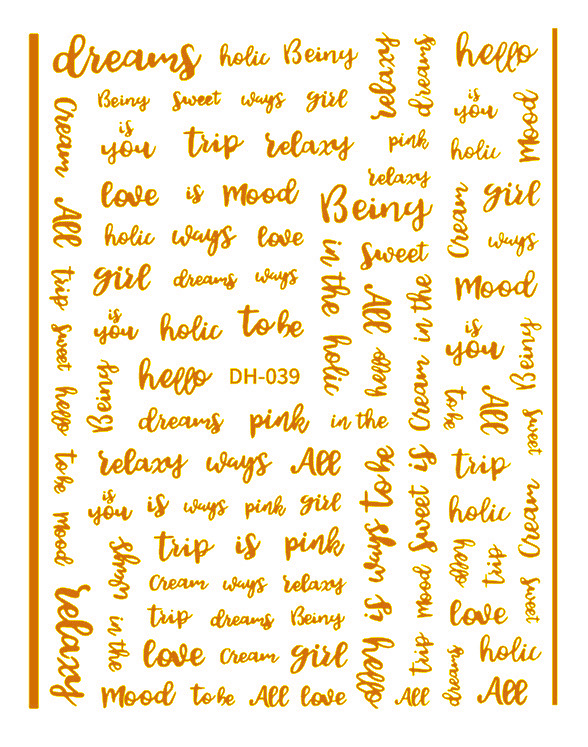 dreams holic Beiny relaxy dreams hello
Beiny sweet ways girl is you Mood
Cream is you trip relaxy pink holic
relaxy
love is Mood Beiny Cream girl
All holic ways love in the holic Sweet ways
trip girl dreams ways All Cream in the Mood
sweet is you holic to be hello is you Beiny
hello Beiny hello DH-039 to be All sweet
dreams pink in the
to be relaxy ways All is ways to be Sweet is trip
Mood is you is ways pink girl holic Cream
ways trip is pink hello trip
relaxy Cream ways relaxy Mood love sweet
in the trip dreams Beiny
love Cream girl hello trip dreams holic
Mood to be All love All All